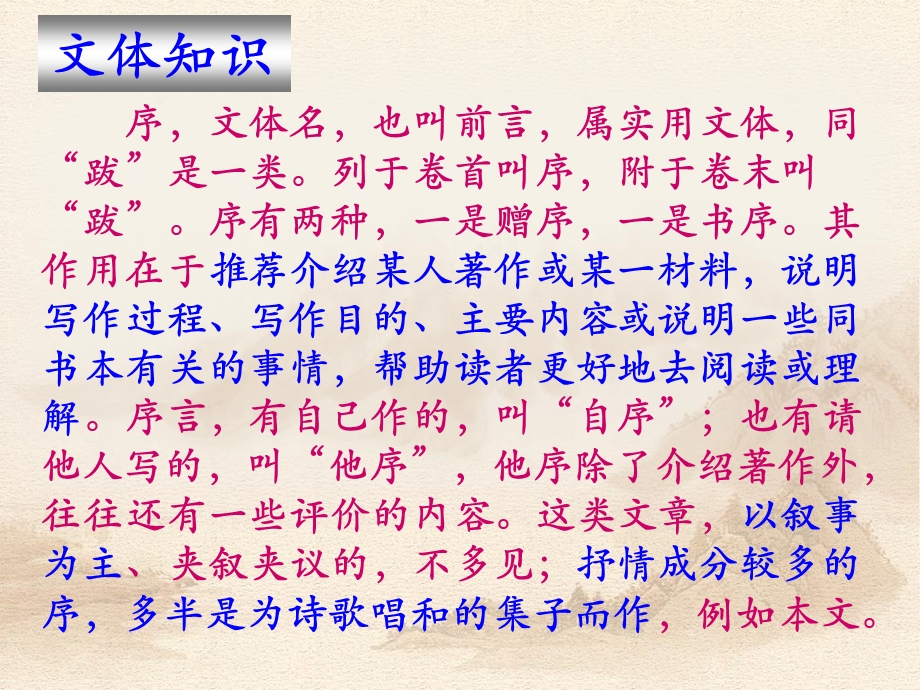 文体知识
序，文体名，也叫前言，属实用文体，同
“跋”是一类。列于卷首叫序，附于卷末叫
“跋”。序有两种，一是赠序，一是书序。其
作用在于推荐介绍某人著作或某一材料，说明
写作过程、写作目的、主要内容或说明一些同
书本有关的事情，帮助读者更好地去阅读或理
解。序言，有自己作的，叫“自序”；也有请
他人写的，叫“他序”，他序除了介绍著作外，
往往还有一些评价的内容。这类文章，以叙事
为主、夹叙夹议的，不多见；抒情成分较多的
序，多半是为诗歌唱和的集子而作，例如本文。